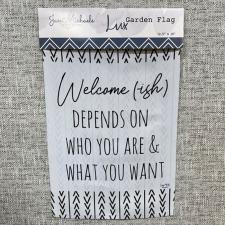 Garden Flag
Lux
12.5" x 18"
Welcome (ish)
DEPENDS ON
WHO YOU ARE &
WHAT YOU WANT